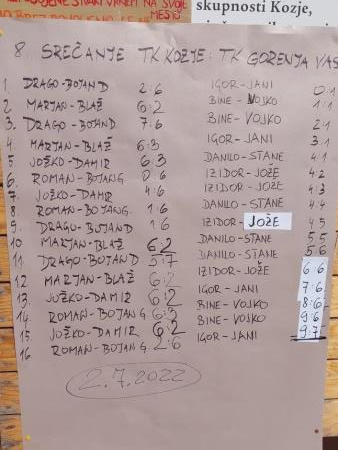 skupnosti Kozje,
8 SREČANJE TK KOZJE : TK GORENJA VAS
1. DRAGO-BOJAN D 2:6 IGOR-JANI 0:1
2. MARJAN-BLAŽ 6:2 BINE-VOJKO 1:1
3. DRAGO-BOJAN D 7:6 BINE-VOJKO 2:1
4. MARJAN-BLAŽ 6:3 IGOR-JANI 3:1
5. JOŽKO-DAMIR 6:3 DANILO-STANE 4:1
6. ROMAN-BOJAN G. 0:6 IZIDOR-JOŽE 4:2
7. JOŽKO-DAMIR 4:6 IZIDOR-JOŽE 4:3
8. ROMAN-BOJAN G. 1:6 DANILO-STANE 4:4
9. DRAGO-BOJAN D 1:6 IZIDOR-JOŽE 4:5
10. MARJAN-BLAŽ 6:2 DANILO-STANE 5:5
11. DRAGO-BOJAN D 5:7 DANILO-STANE 5:6
12 MARJAN-BLAŽ 6:2 IZIDOR-JOŽE 6:6
13. JOŽKO-DAMIR 6:2 IGOR-JANI 7:6
14. ROMAN-BOJAN G 6:3 BINE-VOJKO 8:6
15. JOŽKO-DAMIR 6:2 BINE-VOJKO 9:6
16. ROMAN-BOJAN G. 2:6 IGOR-JANI 9:7
2.7.2022